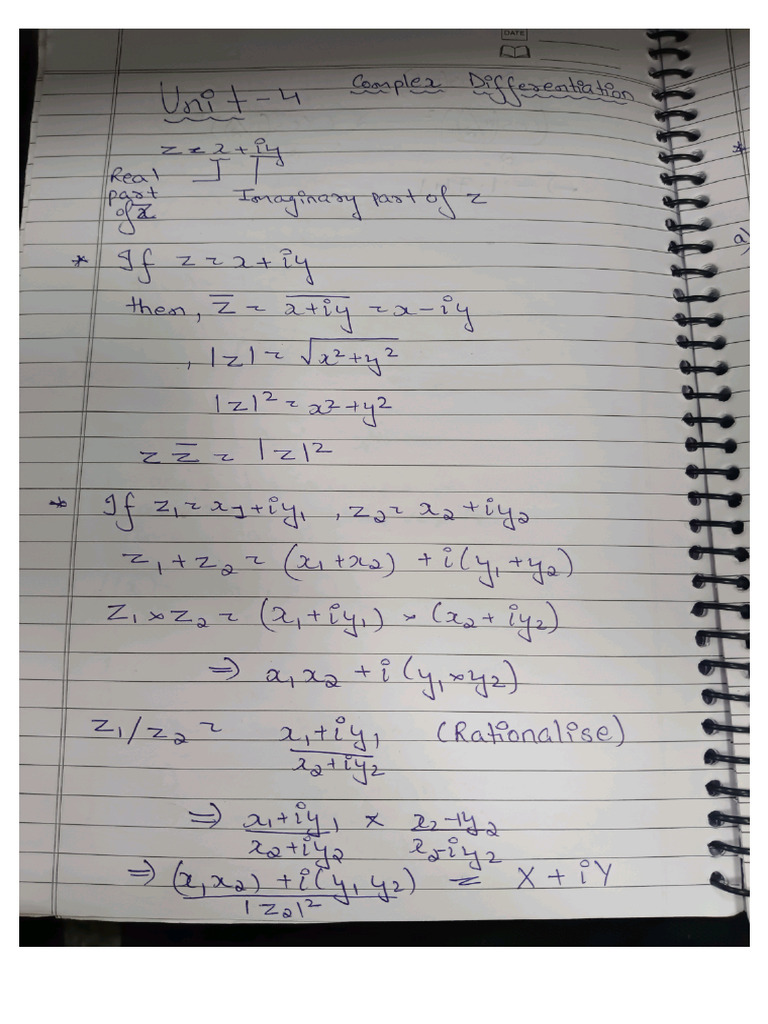 DATE
Unit-4 Complex Differentiation
z = x + iy
Real part of z
Imaginary part of z
* If z = x + iy
then, z̅ = x+iy̅ = x - iy
, |z| = √x²+y²
|z|² = x²+y²
z z̅ = |z|²
* If z₁ = x₁+iy₁, z₂ = x₂+iy₂
z₁+z₂ = (x₁+x₂) + i(y₁+y₂)
z₁×z₂ = (x₁+iy₁) × (x₂+iy₂)
⇒ x₁x₂ + i(y₁×y₂)
z₁/z₂ = x₁+iy₁ / x₂+iy₂ (Rationalise)
⇒ x₁+iy₁ / x₂+iy₂ × x₂-iy₂ / x₂-iy₂
⇒ (x₁x₂) + i(y₁y₂) / |z₂|² = X + iY
*
a)